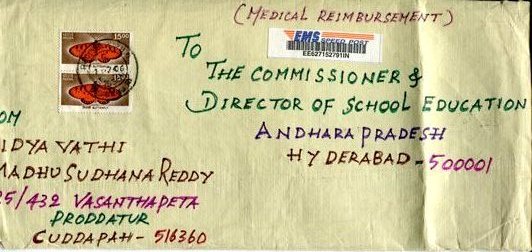 (MEDICAL REIMBURSEMENT)
15.00
15.00
EMS SPEED POST
EE627152791IN
TO
THE COMMISSIONER &
DIRECTOR OF SCHOOL EDUCATION
ANDHARA PRADESH
HYDERABAD - 500001
OM
IDYA VATHI
MADHU SUDHANA REDDY
25/432 VASANTHAPETA
PRODDATUR
CUDDAPAH - 516360